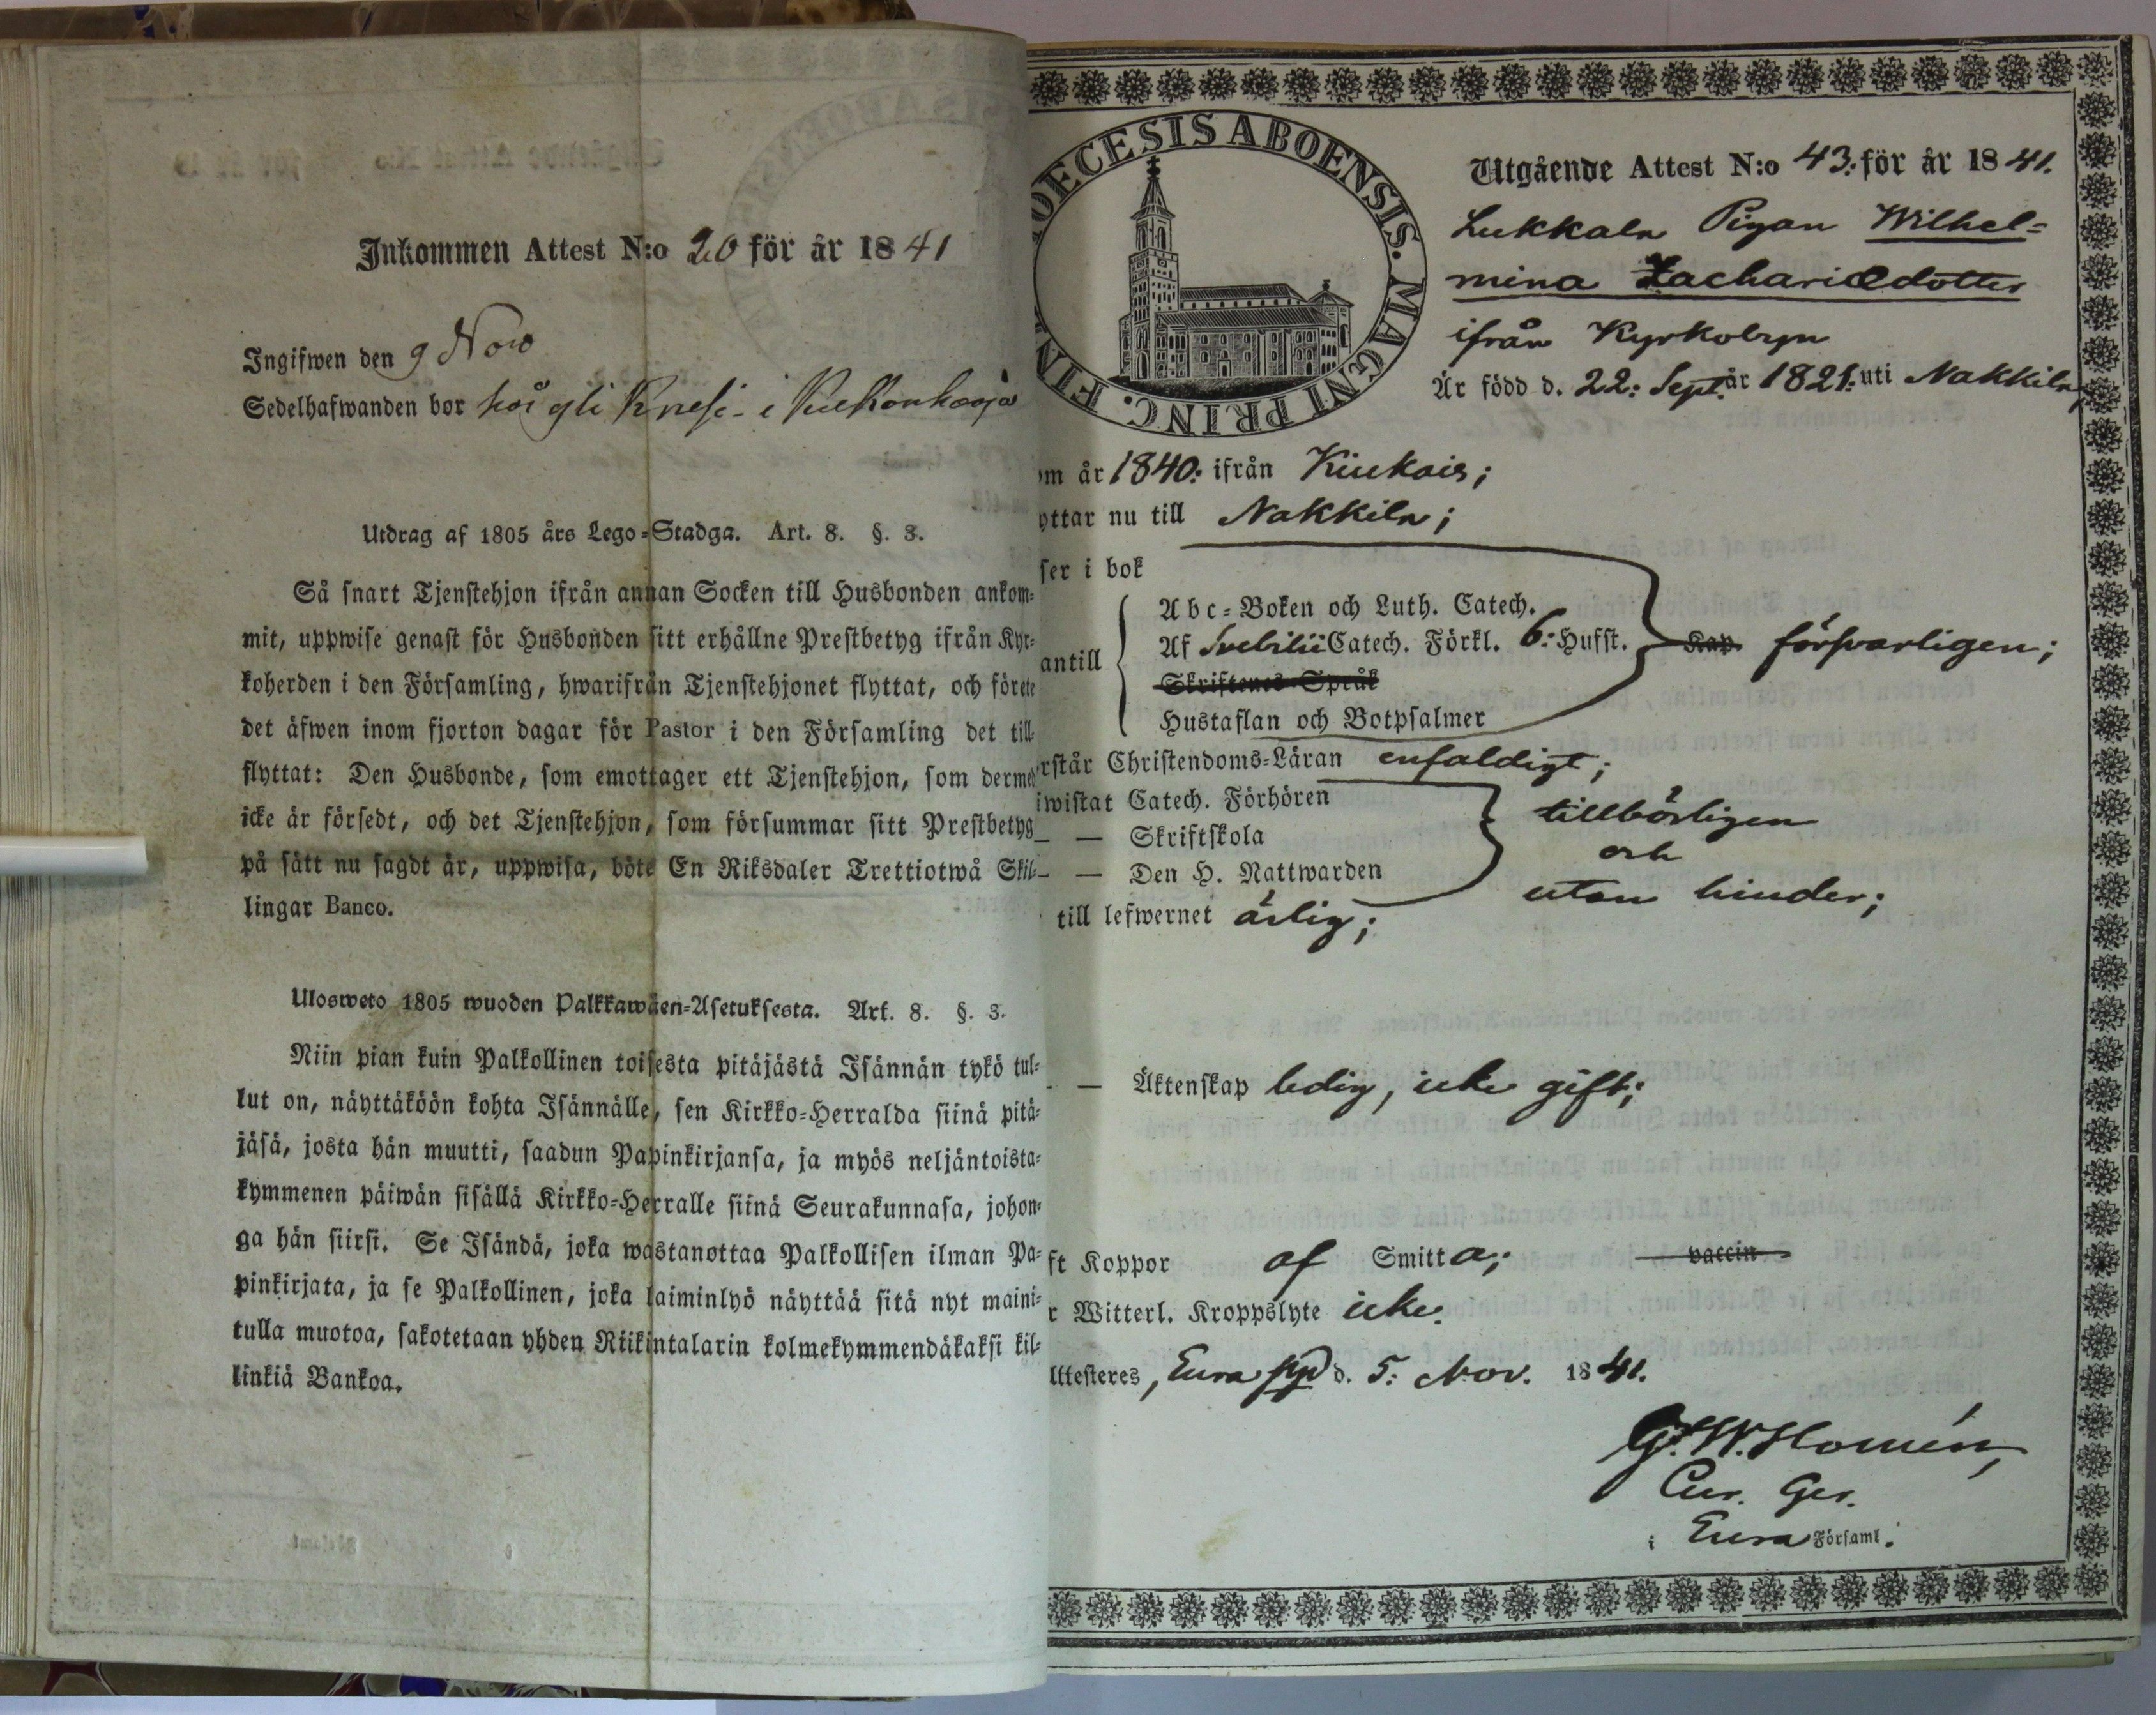 Inkommen Attest N:o 20 för år 1841
Ingifwen den 9 Nov
Sedelhafwanden bor hos i
Utdrag af 1805 års Lego-Stadga. Art. 8. §. 3.
Så snart Tjenstehjon ifrån annan Socken till Husbonden ankom-
mit, uppwise genast för Husbonden sitt erhållne Prestbetyg ifrån Kyr-
koherden i den Församling, hwarifrån Tjenstehjonet flyttat, och förete
det äfwen inom fjorton dagar för Pastor i den Församling det till-
flyttat: Den Husbonde, som emottager ett Tjenstehjon, som dermed
icke är försedt, och det Tjenstehjon, som försummar sitt Prestbetyg
på sätt nu sagdt är, uppwisa, böte En Riksdaler Trettiotwå Skil-
lingar Banco.
Ulosweto 1805 wuoden Palkkawäen-Asetuksesta. Art. 8. §. 3.
Niin pian kuin Palkollinen toisesta pitäjästä Isännän tykö tul-
lut on, näyttäköön kohta Isännälle, sen Kirkko-Herralda siinä pitä-
jäsä, josta hän muutti, saadun Papinkirjansa, ja myös neljäntoista-
kymmenen päiwän sisällä Kirkko-Herralle siinä Seurakunnasa, johon-
ga hän siirsi. Se Isändä, joka wastanottaa Palkollisen ilman Pa-
pinkirjata, ja se Palkollinen, joka laiminlyö näyttää sitä nyt maini-
tulla muotoa, sakotetaan yhden Riikintalarin kolmekymmendäkaksi kil-
linkiä Bankoa.
OECESIS ABOENSIS. MAGNI PRINC. FIN
Utgående Attest N:o 43. för år 1841.
Lukkala Pigan Wilhel-
mina Zachariædotter
ifrån Kyrkobyn
Är född d. 22: Sept. år 1821: uti Nakkila,
om år 1840: ifrån Kiukais;
yttar nu till Nakkila;
ser i bok
Abc-Boken och Luth. Catech.
antill Af Svebilii Catech. Förkl. 6: Hufst. Kap försvarligen;
Skriftenes Språk
Hustaflan och Botpsalmer
rstår Christendoms-Läran enfaldigt;
iwistat Catech. Förhören tillbörligen
— — Skriftskola och
— — Den H. Nattwarden utan hinder;
till lefwernet ärlig;
- — Äktenskap ledig, icke gift;
ft Koppor af Smitta; vaccin
r Witterl. Kroppslyte icke.
ttesteres, Eura d. 5: Nov. 1841.
G. W. Homén,
Cur. Ger.
i Eura Församl.